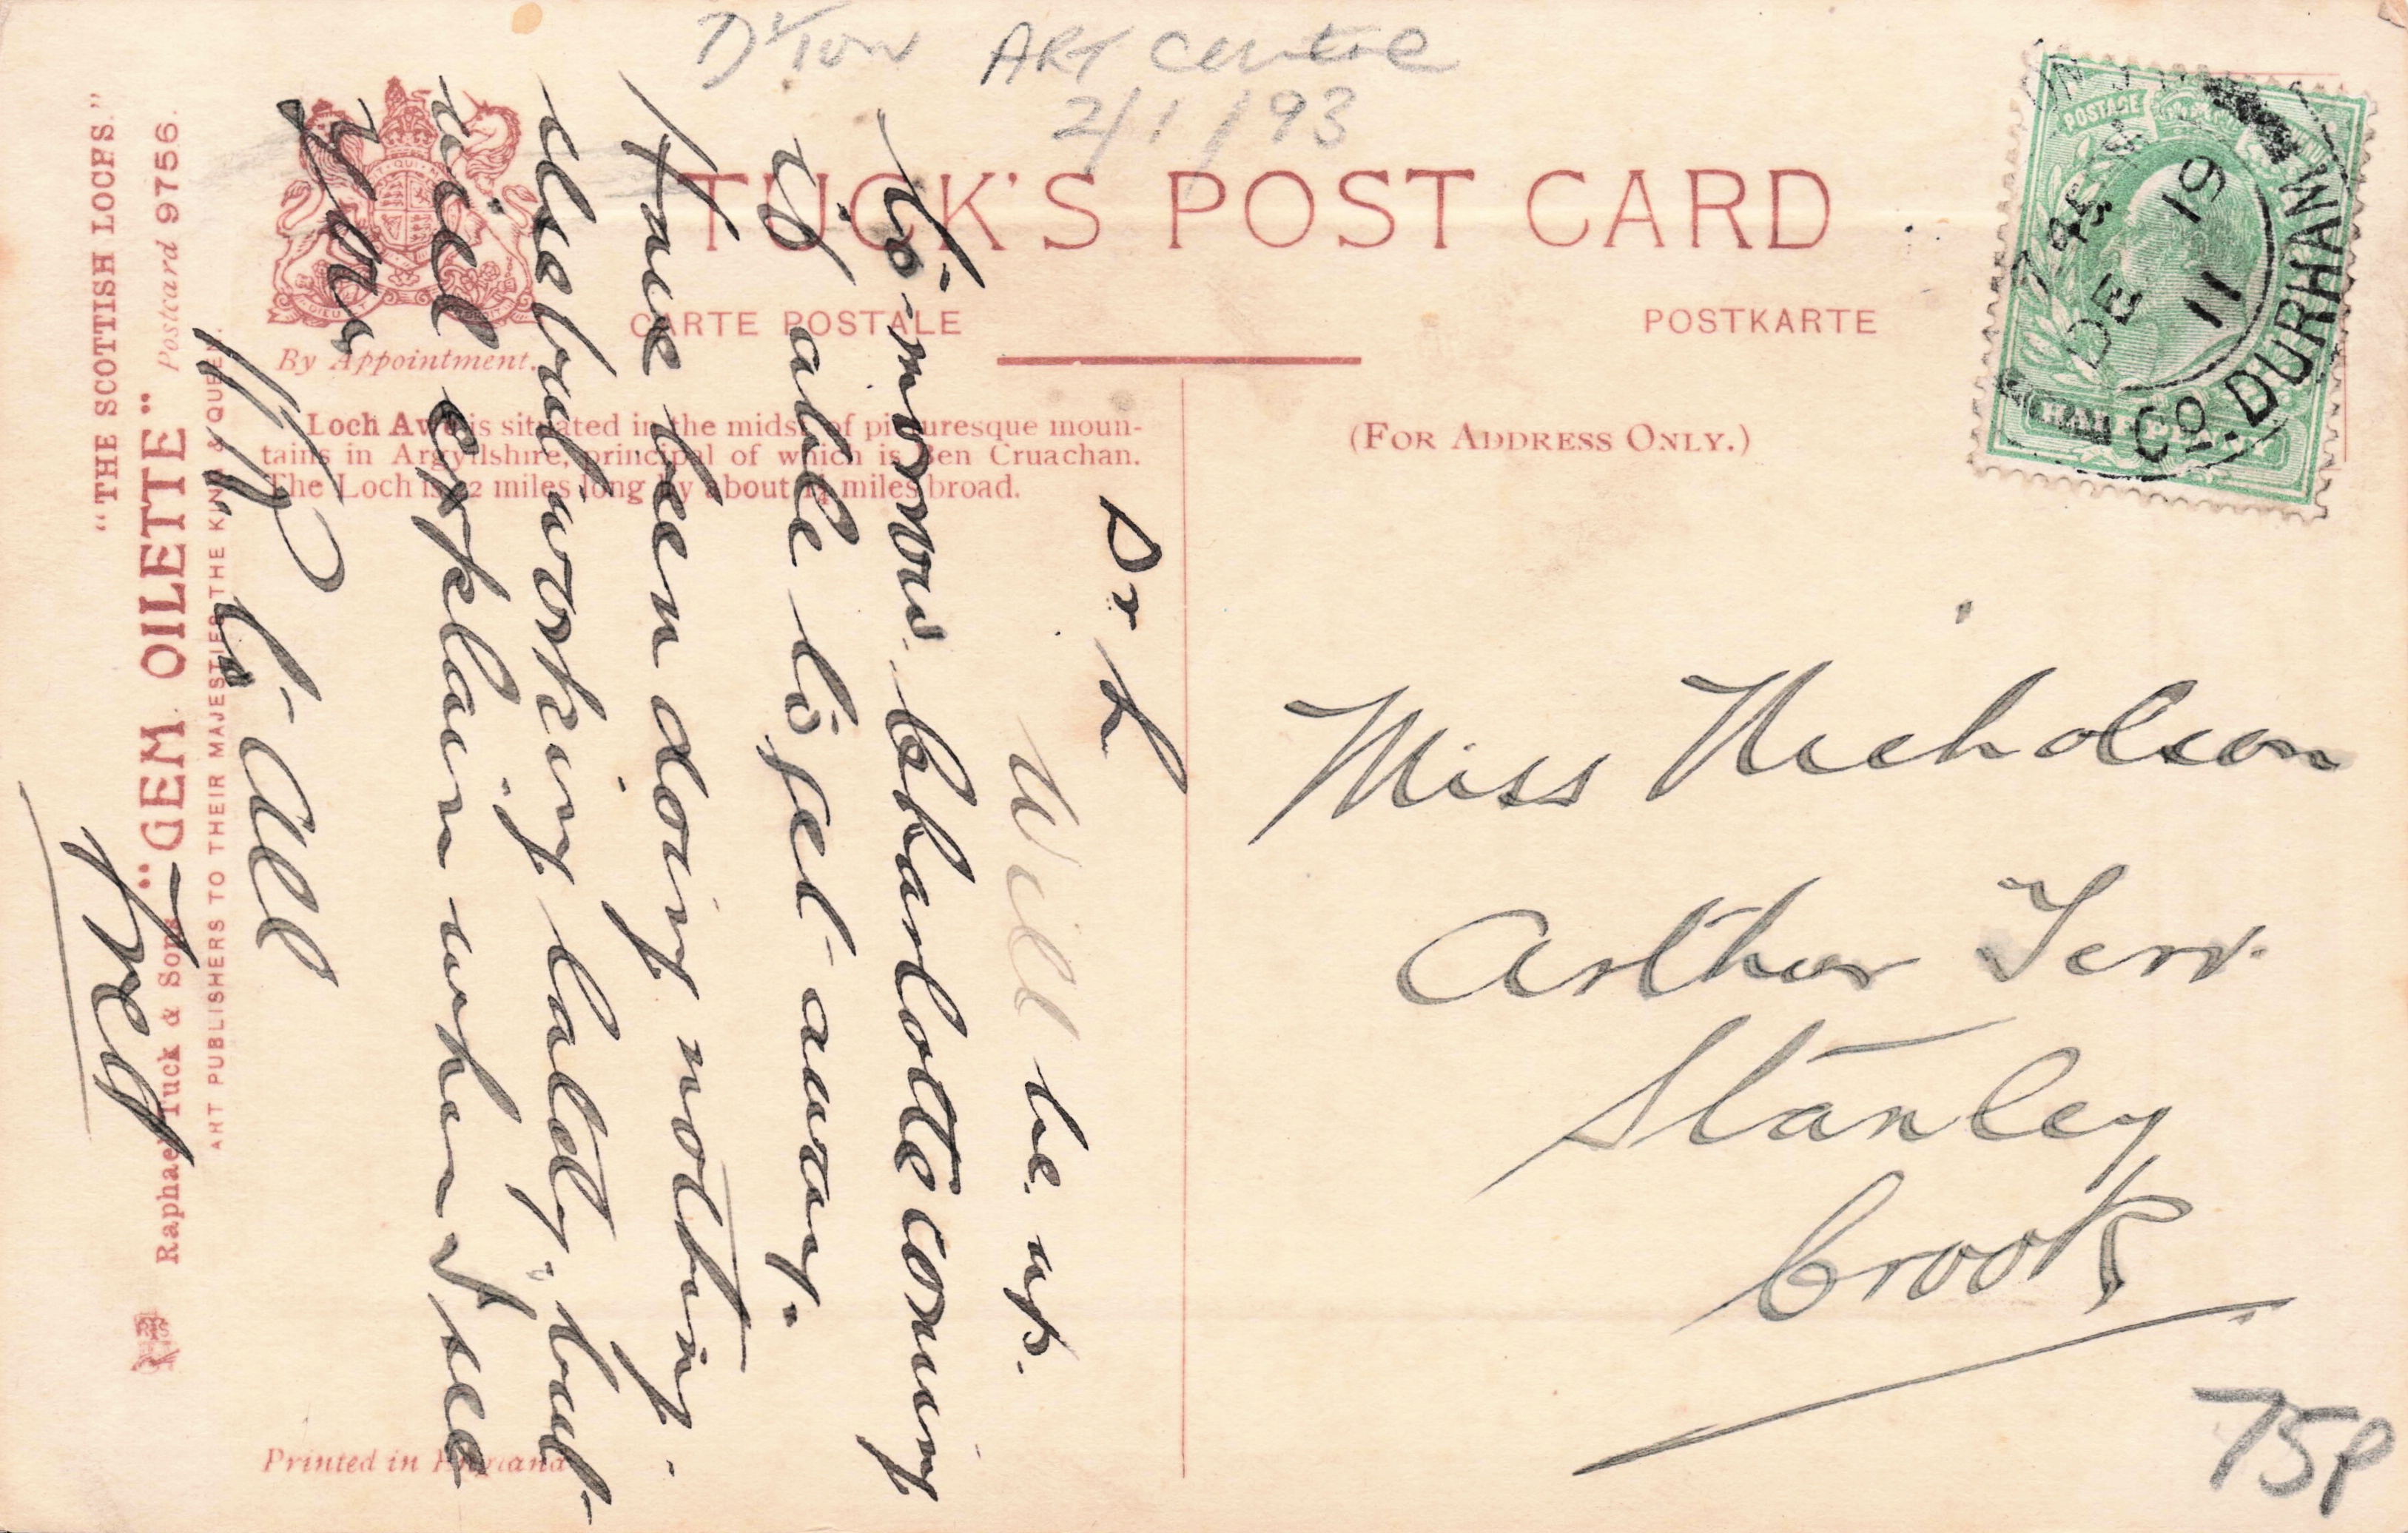 D'ton ART Centre
2/1/93
TUCK'S POST CARD
CARTE POSTALE
POSTKARTE
By Appointment.
(FOR ADDRESS ONLY.)
Loch Awe is situated in the midst of picturesque moun-
tains in Argyllshire, principal of which is Ben Cruachan.
The Loch is 22 miles long by about 1½ miles broad.
"THE SCOTTISH LOCHS."
Postcard 9756.
Raphael Tuck & Sons "GEM OILETTE"
ART PUBLISHERS TO THEIR MAJESTIES THE KING & QUEEN.
Printed in England
POSTAGE
HALFPENNY
CO. DURHAM
DE 19
11
Dr L
Will be up.
to-morrow. Charlotte coming
is able to get away.
Have been doing nothing.
else but working lately, but
will explain when I see
you
to all
Fred
Miss Nicholson
Arthur Terr.
Stanley
Crook
75p